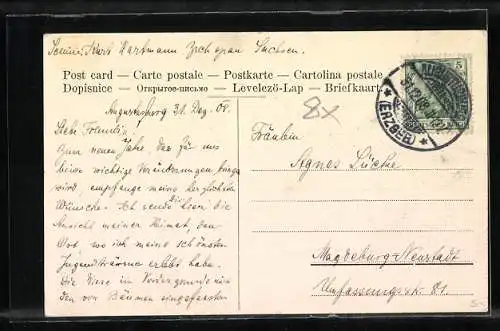 Semin. Kurt Hartmann Zschopau Sachsen.
Post card — Carte postale — Postkarte — Cartolina postale
Dopisnice — Открытое-письмо — Levelező-Lap — Briefkaart
Augustusburg 31. Dez. 09.
8x
Zum neuen Jahre, das für uns
wichtige Veränderungen
wird, empfange meine herzlichsten
Wünsche. Ich sende die
Ansicht meiner Heimat, den
Ort wo ich meine schönsten
Jugendträume erlebt habe.
Die Wiese im Vordergrunde mit
den von Bäumen eingefassten
5
(ERZGEB)
Fräulein
Agnes
Magdeburg-Neustadt
Umfassungsstr. 81.